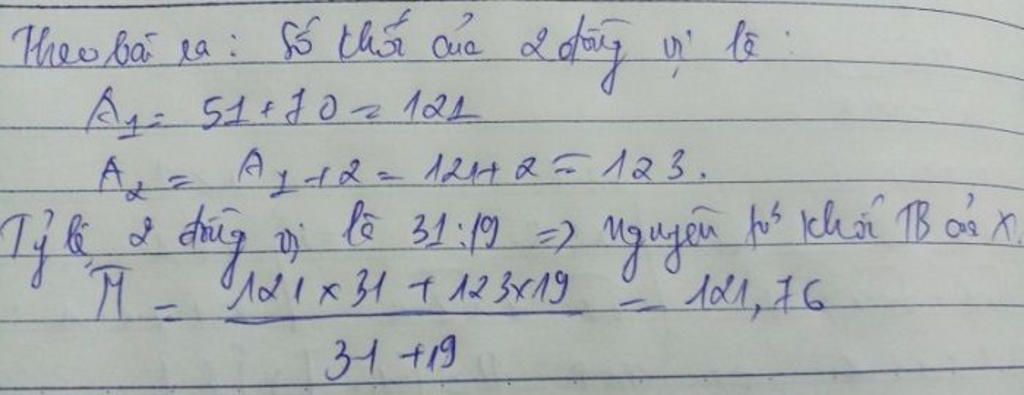 Theo bài ra: Số khối của 2 đồng vị là:
A₁ = 51 + 70 = 121
A₂ = A₁ + 2 = 121 + 2 = 123.
Tỷ lệ 2 đồng vị là 31:19 => nguyên tử khối TB của X.
M̅ = (121 x 31 + 123 x 19) / (31 + 19) = 121,76